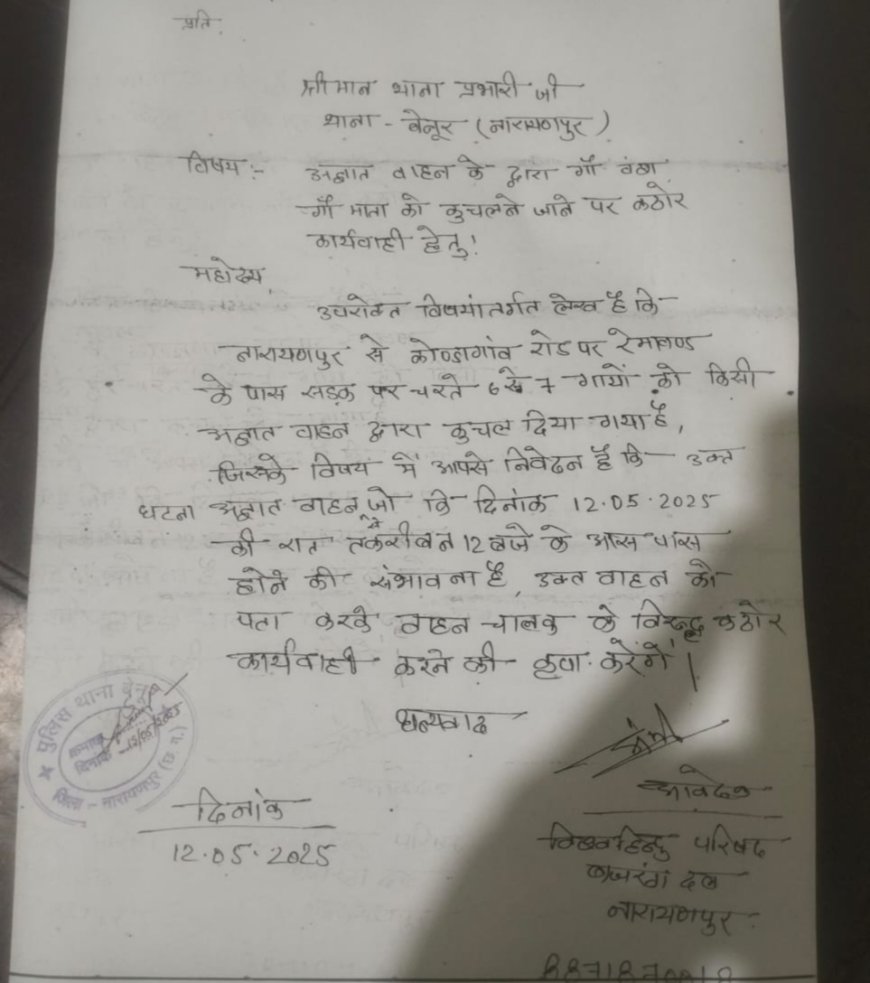 प्रति,
श्रीमान थाना प्रभारी जी
थाना - बेनूर (नारायणपुर)
विषय :- अज्ञात वाहन के द्वारा गौ वंश
गौ माता को कुचलने जाने पर कठोर
कार्यवाही हेतु!
महोदय,
उपरोक्त विषयांतर्गत लेख है कि
नारायणपुर से कोण्डागांव रोड पर रेमावण्ड
के पास सड़क पर चरते 6 से 7 गायों को किसी
अज्ञात वाहन द्वारा कुचल दिया गया है,
जिसके विषय में आपसे निवेदन है कि उक्त
घटना अज्ञात वाहन से जो कि दिनांक 12.05.2025
की रात तकरीबन 12 बजे के आस पास
होने की संभावना है, उक्त वाहन को
पता करके वाहन चालक के विरुद्ध कठोर
कार्यवाही करने की कृपा करेंगे।
धन्यवाद
पुलिस थाना बेनूर
क्रमांक
दिनांक 12/05/2025
जिला - नारायणपुर (छ.ग.)
दिनांक
12.05.2025
आवेदक
विश्व हिन्दु परिषद
बजरंग दल
नारायणपुर